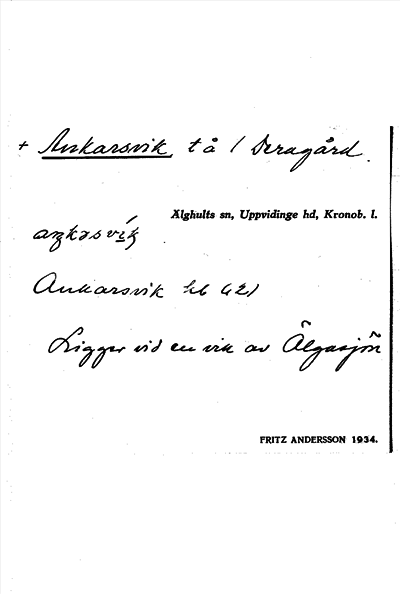 + Ankarsvik, tå / Deragård.
Älghults sn, Uppvidinge hd, Kronob. l.
aŋkasvík
Ankarsvik hb 621
Ligger vid en vik av Älgasjön
FRITZ ANDERSSON 1934.